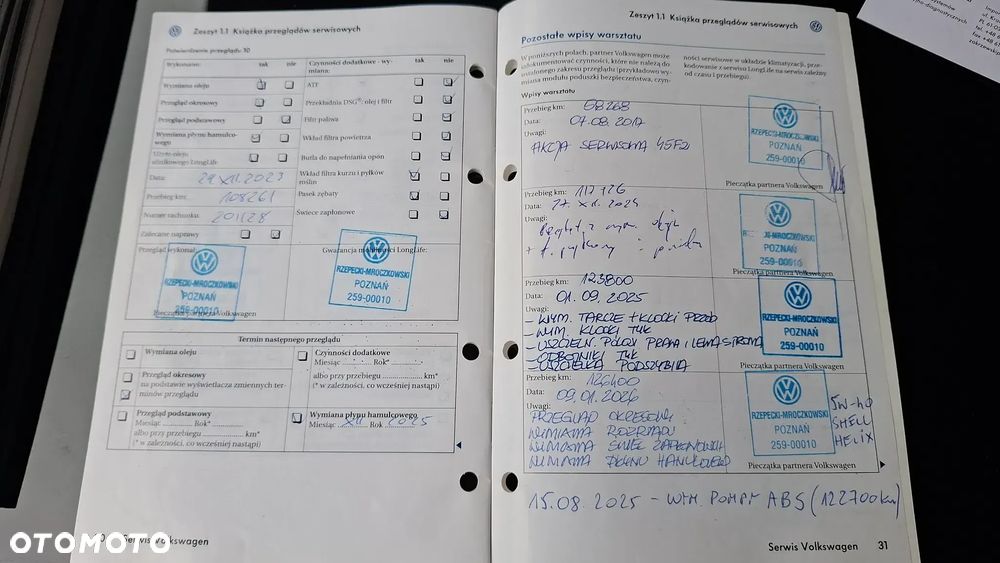 Zeszyt 1.1 Książka przeglądów serwisowych
Potwierdzenie przeglądu 10
Wykonano: tak nie
Wymiana oleju
Przegląd okresowy
Przegląd podstawowy
Wymiana płynu hamulco-
wego
Użyto oleju
silnikowego LongLife
Data: 29 XII. 2023
Przebieg km: 108261
Numer rachunku: 201128
Zalecane naprawy
Przegląd wykonał:
RZEPECKI-MROCZKOWSKI
POZNAŃ
259-00010
Pieczątka partnera Volkswagen
Czynności dodatkowe - wy-
miana: tak nie
ATF
Przekładnia DSG®: olej i filtr
Filtr paliwa
Wkład filtra powietrza
Butla do napełniania opon
Wkład filtra kurzu i pyłków
roślin
Pasek zębaty
Świece zapłonowe
Gwarancja mobilności LongLife:
RZEPECKI-MROCZKOWSKI
POZNAŃ
259-00010
Termin następnego przeglądu
Wymiana oleju
Przegląd okresowy
na podstawie wyświetlacza zmiennych ter-
minów przeglądu
Przegląd podstawowy
Miesiąc Rok*
albo przy przebiegu km*
(* w zależności, co wcześniej nastąpi)
Czynności dodatkowe
Miesiąc Rok*
albo przy przebiegu km*
(* w zależności, co wcześniej nastąpi)
Wymiana płynu hamulcowego
Miesiąc XII Rok 2025
Serwis Volkswagen
OTOMOTO
Zeszyt 1.1 Książka przeglądów serwisowych
Pozostałe wpisy warsztatu
W poniższych polach, partner Volkswagen może
udokumentować czynności, które nie należą do
ustalonego zakresu przeglądu (przykładowo wy-
miana modułu poduszki bezpieczeństwa, czyn-
ności serwisowe w układzie klimatyzacji, prze-
kodowanie z serwisu LongLife na serwis zależny
od czasu i przebiegu).
Wpisy warsztatu
Przebieg km: 68268
Data: 07.08.2017
Uwagi:
AKCJA SERWISOWA 45F2
RZEPECKI-MROCZKOWSKI
POZNAŃ
259-00010
Pieczątka partnera Volkswagen
Przebieg km: 117726
Data: 17. XII. 2024
Uwagi:
POZNAŃ
259-00010
Pieczątka partnera Volkswagen
Przebieg km: 123800
Data: 01.09.2025
Uwagi:
- WYM. TARCZE + KLOCKI PRZÓD
- WYM. KLOCKI TYŁ
- USZCZELN. PÓŁOŚ PRAWA I LEWA STRONA
- ODBOJNIKI TYŁ
- USZCZELKA PODSZYBIA
RZEPECKI-MROCZKOWSKI
POZNAŃ
259-00010
Pieczątka partnera Volkswagen
Przebieg km: 126400
Data: 09.01.2026
Uwagi:
PRZEGLĄD OKRESOWY
WYMIANA ROZRZĄDU
WYMIANA ŚWIEC ZAPŁONOWYCH
WYMIANA PŁYNU HAMULCOWEGO
RZEPECKI-MROCZKOWSKI
POZNAŃ
259-00010
5W-40
SHELL
HELIX
Pieczątka partnera Volkswagen
15.08.2025 - WYM. POMPY ABS (122700km)
Serwis Volkswagen 31